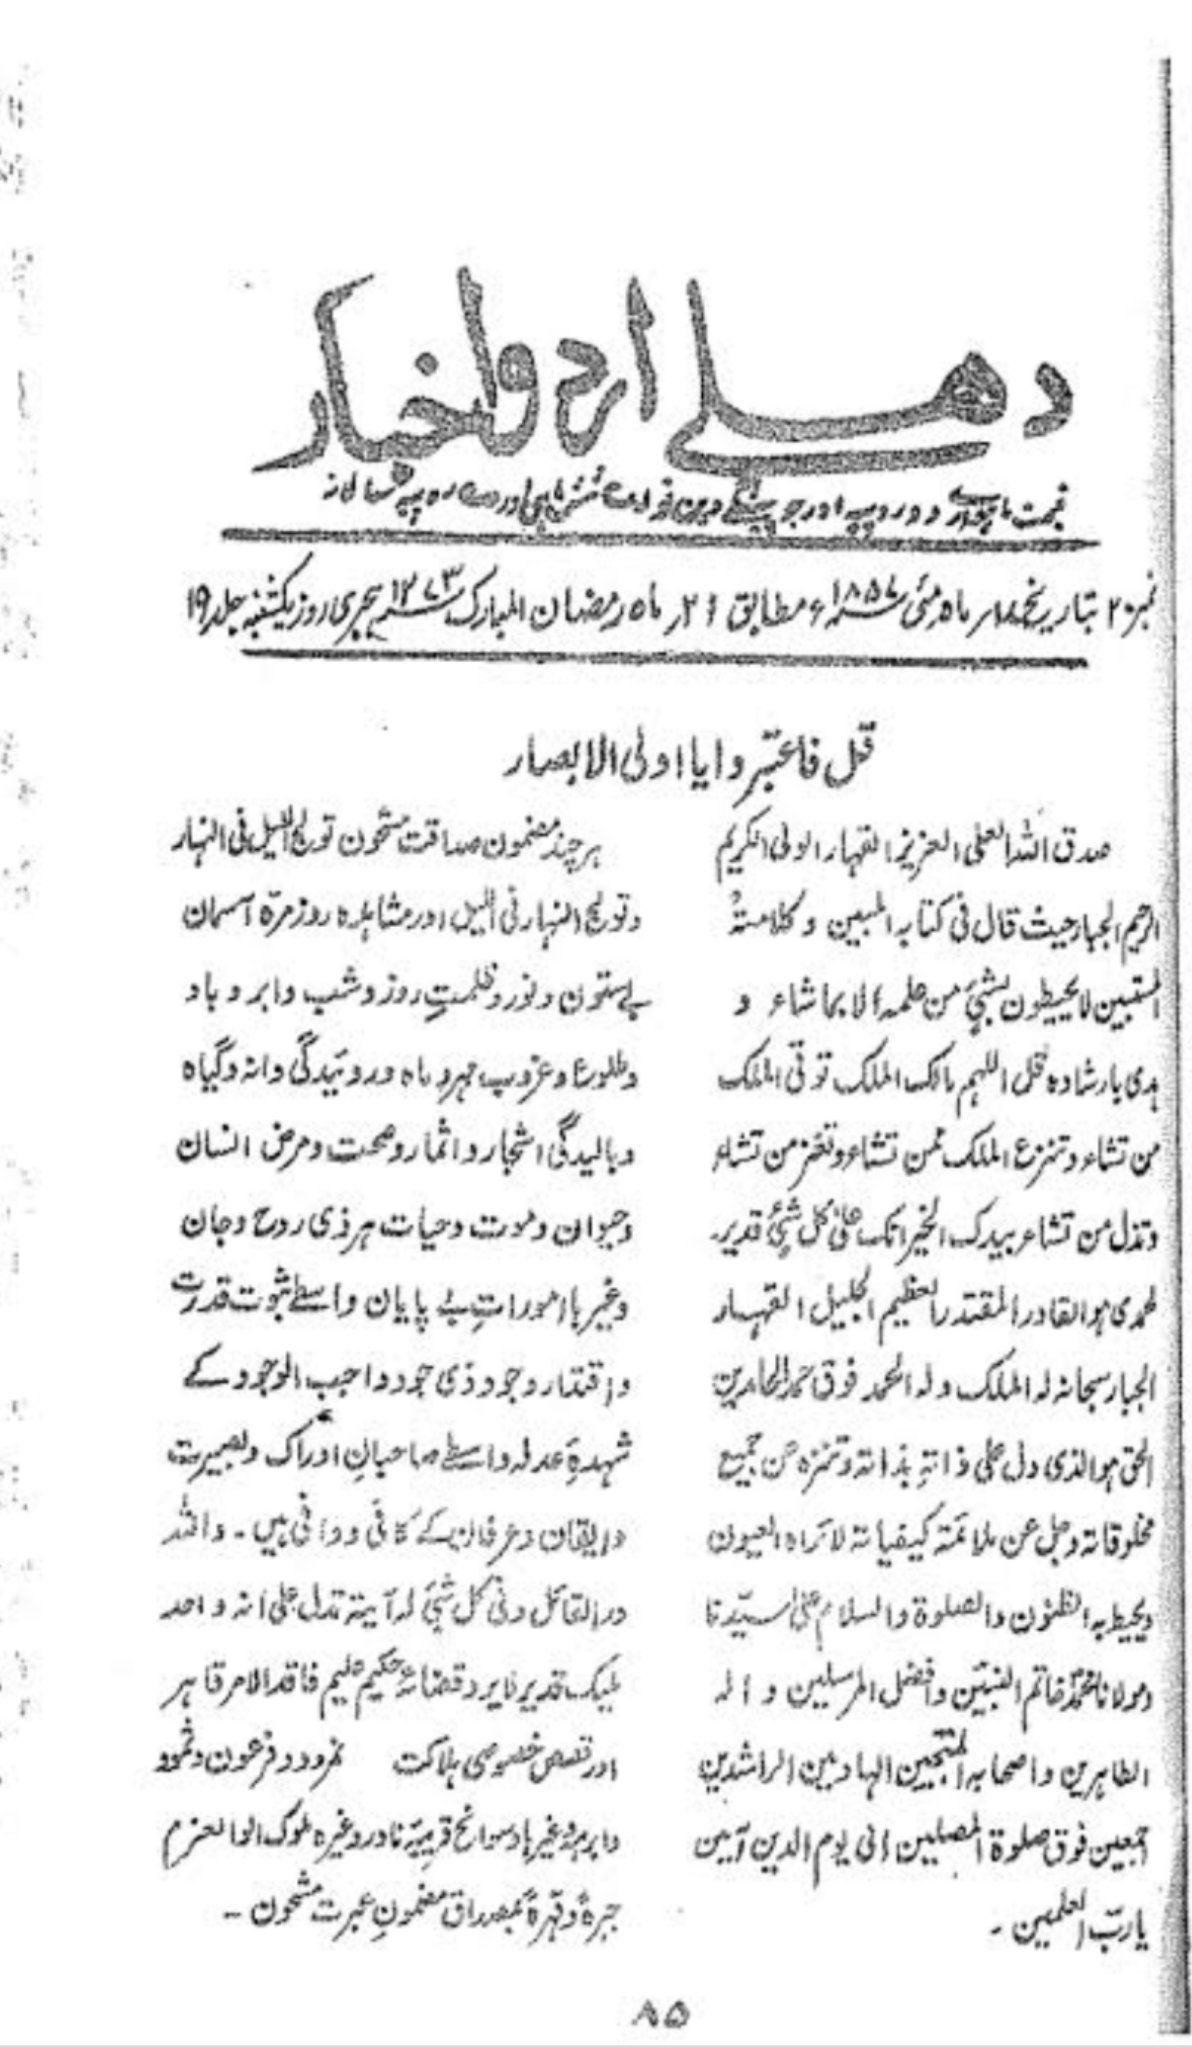 دهلی اردو اخبار
قیمت ماہوار دو روپیہ اور جو پیشگی دین تو ششماہی اور روپیہ سالانہ
نمبر ۲۰ بتاریخ ماہ مئی ۱۸۵۷ء مطابق ۲۱ر ماہ رمضان المبارک ۱۲۷۳ ہجری روز یکشنبہ جلد ۱۹
قل فاعتبروا یا اولی الابصار
صدق اللہ العلی العزیز القہار الولی الکریم
الرحیم الجبار حیث قال فی کتابہ المبین و کلامہ
المستبین لا یحیطون بشیٔ من علمہ الا بما شاء و
ہدی بارشادہ قل اللہم مالک الملک توتی الملک
من تشاء و تنزع الملک ممن تشاء و تعز من تشاء
و تذل من تشاء بیدک الخیر انک علیٰ کل شیٔ قدیر۔
ہو القادر المقتدر العظیم الجلیل القہار
الجبار سبحانہ لہ الملک و لہ الحمد فوق حمد الحامدین
الحق ہو الذی دل علی ذاتہٖ بذاتہ و تنزہ عن جمیع
مخلوقاتہ و جل عن ملائمتہ کیفیاتہ لا تراہ العیون
و یحیط بہ الظنون و الصلوۃ والسلام علیٰ سیّدنا
و مولانا محمدٌ خاتم النبیین و افضل المرسلین و الہ
الطاہرین و اصحابہ المنتجبین الہادیین الراشدین
اجمعین فوق صلوۃ المصلین الی یوم الدین آمین
یا ربّ العلمین ۔
ہر چند مضمون صداقت مشحون تولج اللیل فی النہار
و تولج النہار فی اللیل اور مشاہدہ روز مرّہ آسمان
بے ستون و نور و ظلمتِ روز و شب و ابر و باد
و طلوع و غروب مہر و ماہ و روئیدگی دانہ و گیاہ
و بالیدگی اشجار و اثمار و صحت و مرض انسان
و حیوان و موت و حیات ہر ذی روح و جان
و غیرہا اموراتِ بے پایان واسطے ثبوت قدرت
و اقتدار وجود ذی جود واجب الوجود کے
شہدۂ عدل واسطے صاحبانِ ادراک و بصیرت
و ایقان و عرفان کے کافی و وافی ہیں ۔ واللہ
در القائل و فی کل شیٔ لہ آیتہ تدل علی انہ واحد
ملیک قدیر لا یرد قضائہ حکیم علیم نافذ الامر قاہر
اور قصص خصوصی ہلاکت نمرود و فرعون و ثمود
و ابرہہ و غیرہا و سوانح قریبہ نادر و غیرہ ملوک الوالعزم
جبرۃً و قہرۃً بمصداق مضمونِ عبرت مشحون ۔
۸۵